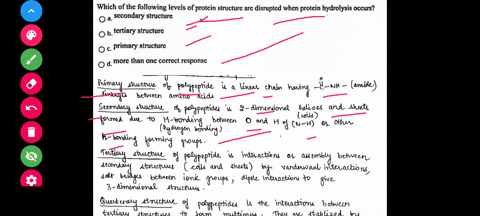 Which of the following levels of protein structure are disrupted when protein hydrolysis occurs?
a. secondary structure
b. tertiary structure
c. primary structure
d. more than one correct response
Primary structure of polypeptide is a linear chain having -C-NH- (amide)
O
linkages between amino acids
Secondary structure of polypeptides is 2-dimensional helices and sheets
(cells)
formed due to H-bonding between O and H of (N-H) or other
(hydrogen bonding)
H-bonding forming groups.
Tertiary structure of polypeptide is interactions or assembly between
secondary structures (coil and sheets) by vanderwaal interactions,
salt bridges between ionic groups, dipole interactions to give
3-dimensional structure.
Quaternary structure of polypeptides is the interactions between
tertiary structure to form multimers. They are stabilized by